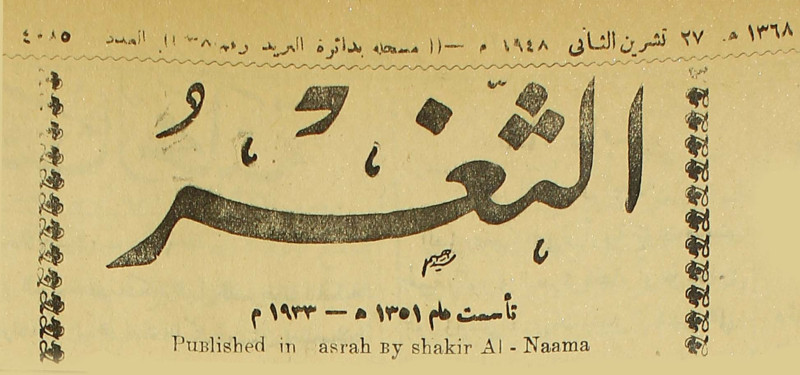 ١٣٦٨ هـ ٢٧ تشرين الثاني ١٩٤٨ م — (( مسجله بدائرة البريد العدد ٤٠٨٥
الثَّغْرُ
تأسست عام ١٣٥١ ه — ١٩٣٣ م
Published in asrah By shakir Al - Naama